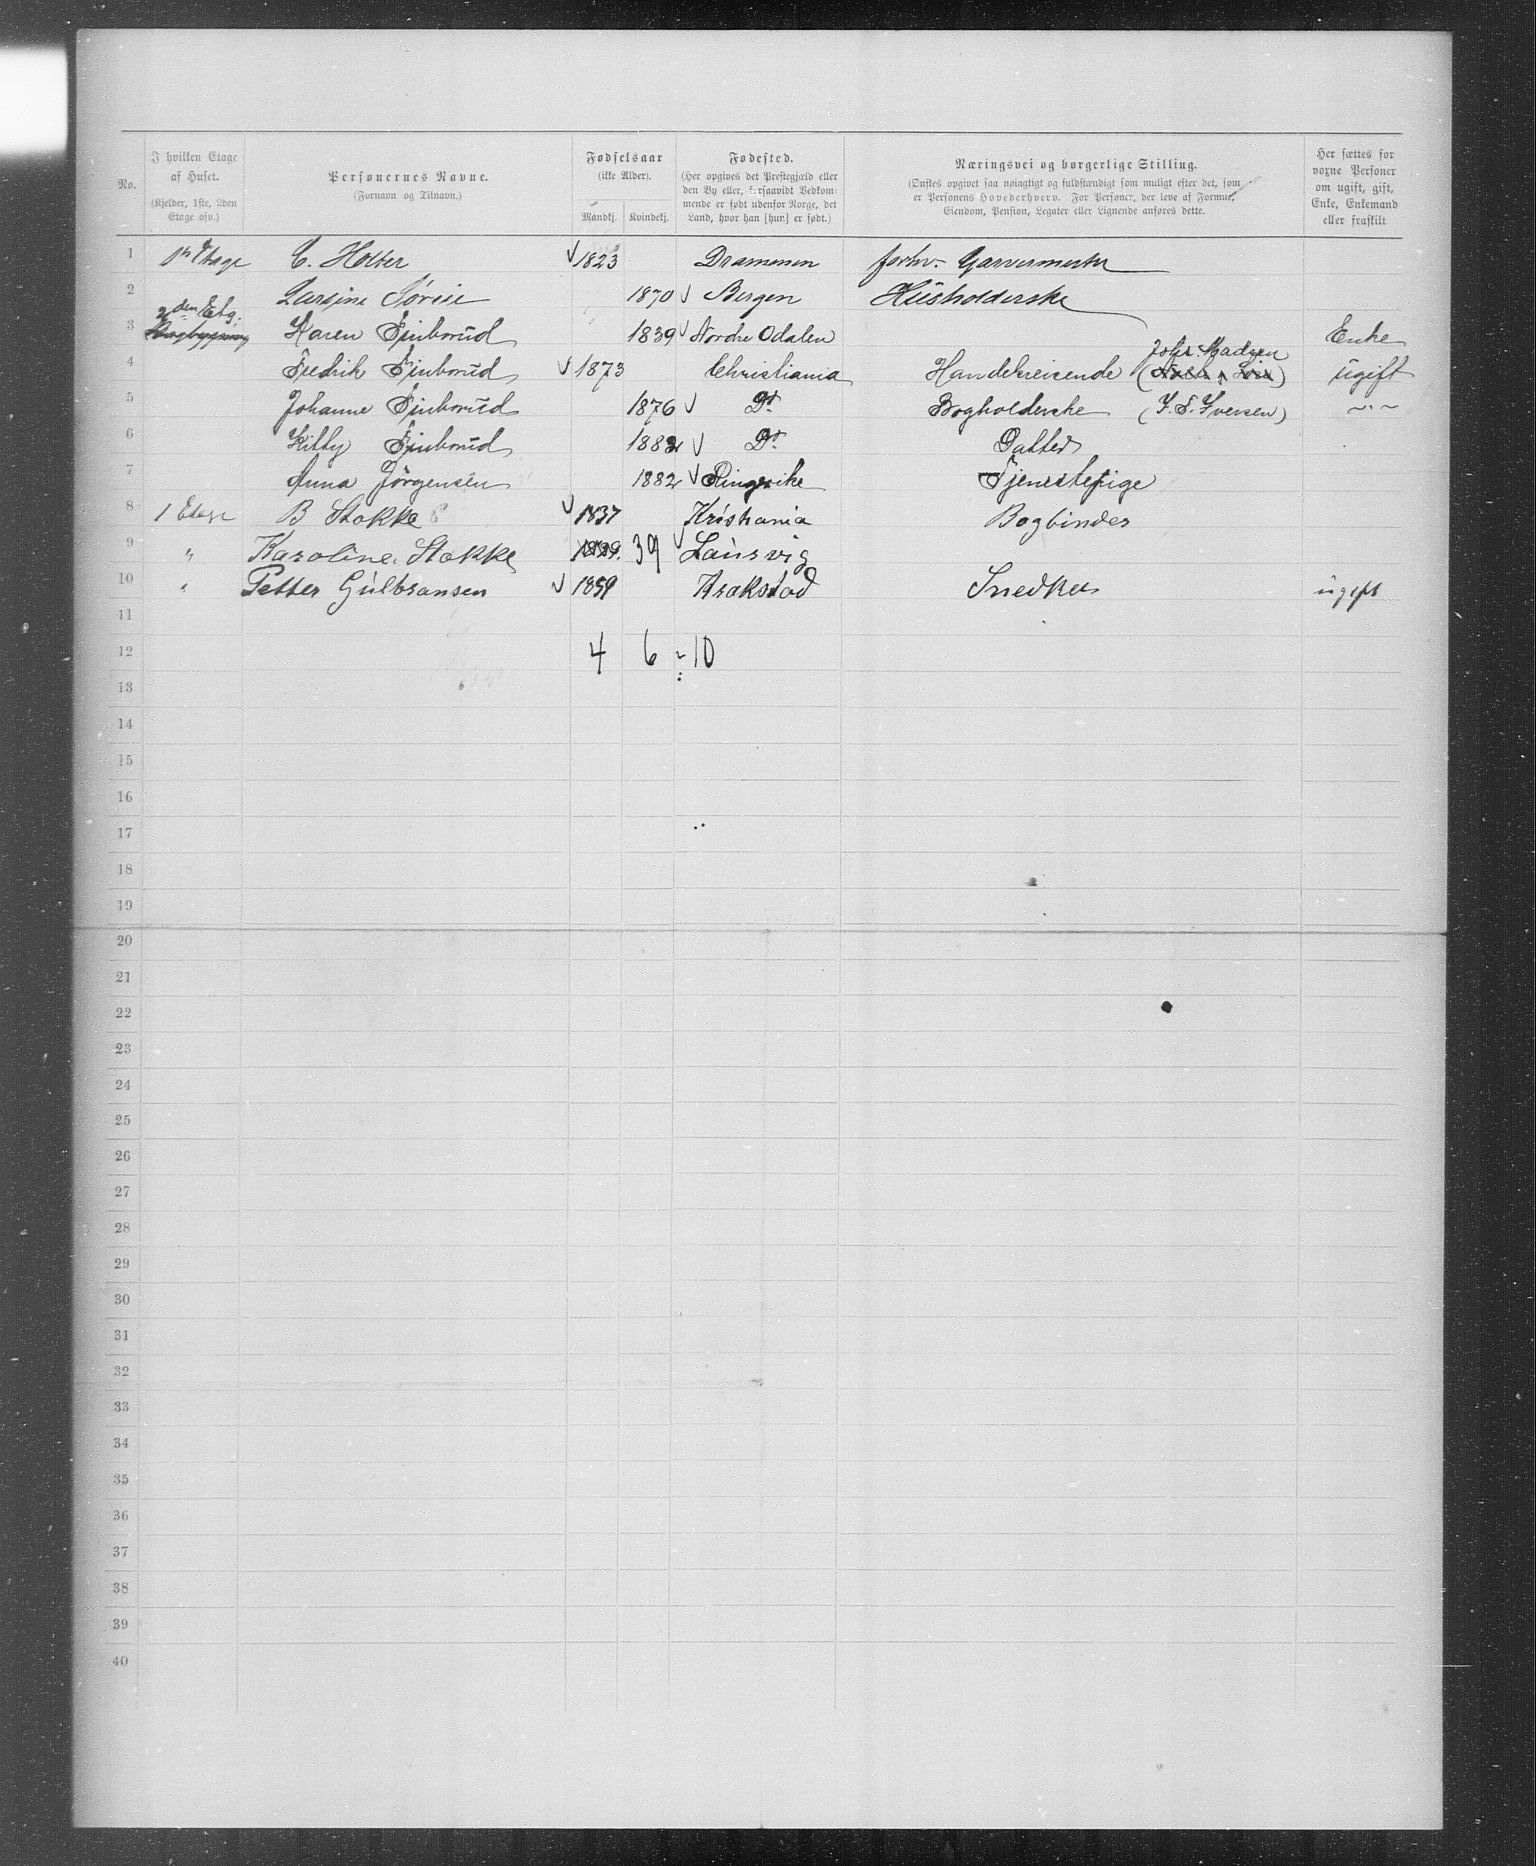 No. I hvilken Etage af Huset. (Kjelder, 1ste, 2den Etage osv.) Personernes Navne. (Fornavn og Tilnavn.) Fødselsaar (ikke Alder). Mandkj. Kvindekj. Fødested. (Her opgives det Prestegjæld eller den By eller, forsaavidt Vedkommende er født udenfor Norge, det Land, hvor han [hun] er født.) Næringsvei og borgerlige Stilling. (Ønskes opgivet saa nøiagtigt og fuldstændigt som muligt efter det, som er Personens Hovederhverv. For Personer, der leve af Formue, Eiendom, Pension, Legater eller Lignende anføres dette. Her sættes for voxne Personer om ugift, gift, Enke, Enkemand eller fraskilt
1 1ste Etage C. Holter 1823 Drammen forhv. Garvermester
2 Larsine 1870 Bergen Husholderske
3 2den Etg. Karen Finborud 1839 Nordre Odalen Enke
Johs. Madsen
4 Fredrik Finborud 1873 Christiania Handelsreisende ugift
5 Johanne Finborud 1876 Do Bogholderske (J. S. Iversen) —"—
6 Kitty Finborud 1882 Do Datter
7 Anna Jörgensen 1882 Ringerike Tjenestepige
8 1 Etage B Stokke 1837 Kristiania Bogbinder
9 " Karoline Stokke 1839. 39 Laurvig
10 " Petter Gulbransen 1859 Krakstad Snedker ugift
11
12 4 6 - 10
13
14
15
16
17
18
19
20
21
22
23
24
25
26
27
28
29
30
31
32
33
34
35
36
37
38
39
40